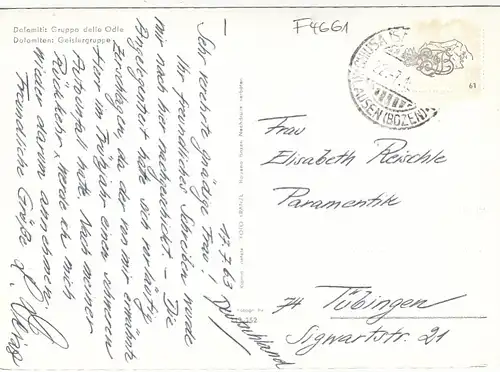 Dolomiti: Gruppo delle Odle
Dolomiten: Geislergruppe
F4661
17.7.63
Sehr verehrte gnädige Frau!
Ihr freundliches Schreiben wurde
mir nach hier nachgeschickt. – Die
Angelegenheit hätte sich vorläufig
zerschlagen, da der von mir erwähnte
Herr im Frühjahr einen schweren
Autounfall hatte. Nach meiner
Rückkehr werde ich mich
wieder darum annehmen.
Freundliche Grüße
61
AUSEN (BOZEN)
Frau
Elisabeth Reischle
Paramentik
74 Tübingen
Sigwartstr. 21
Deutschland
252